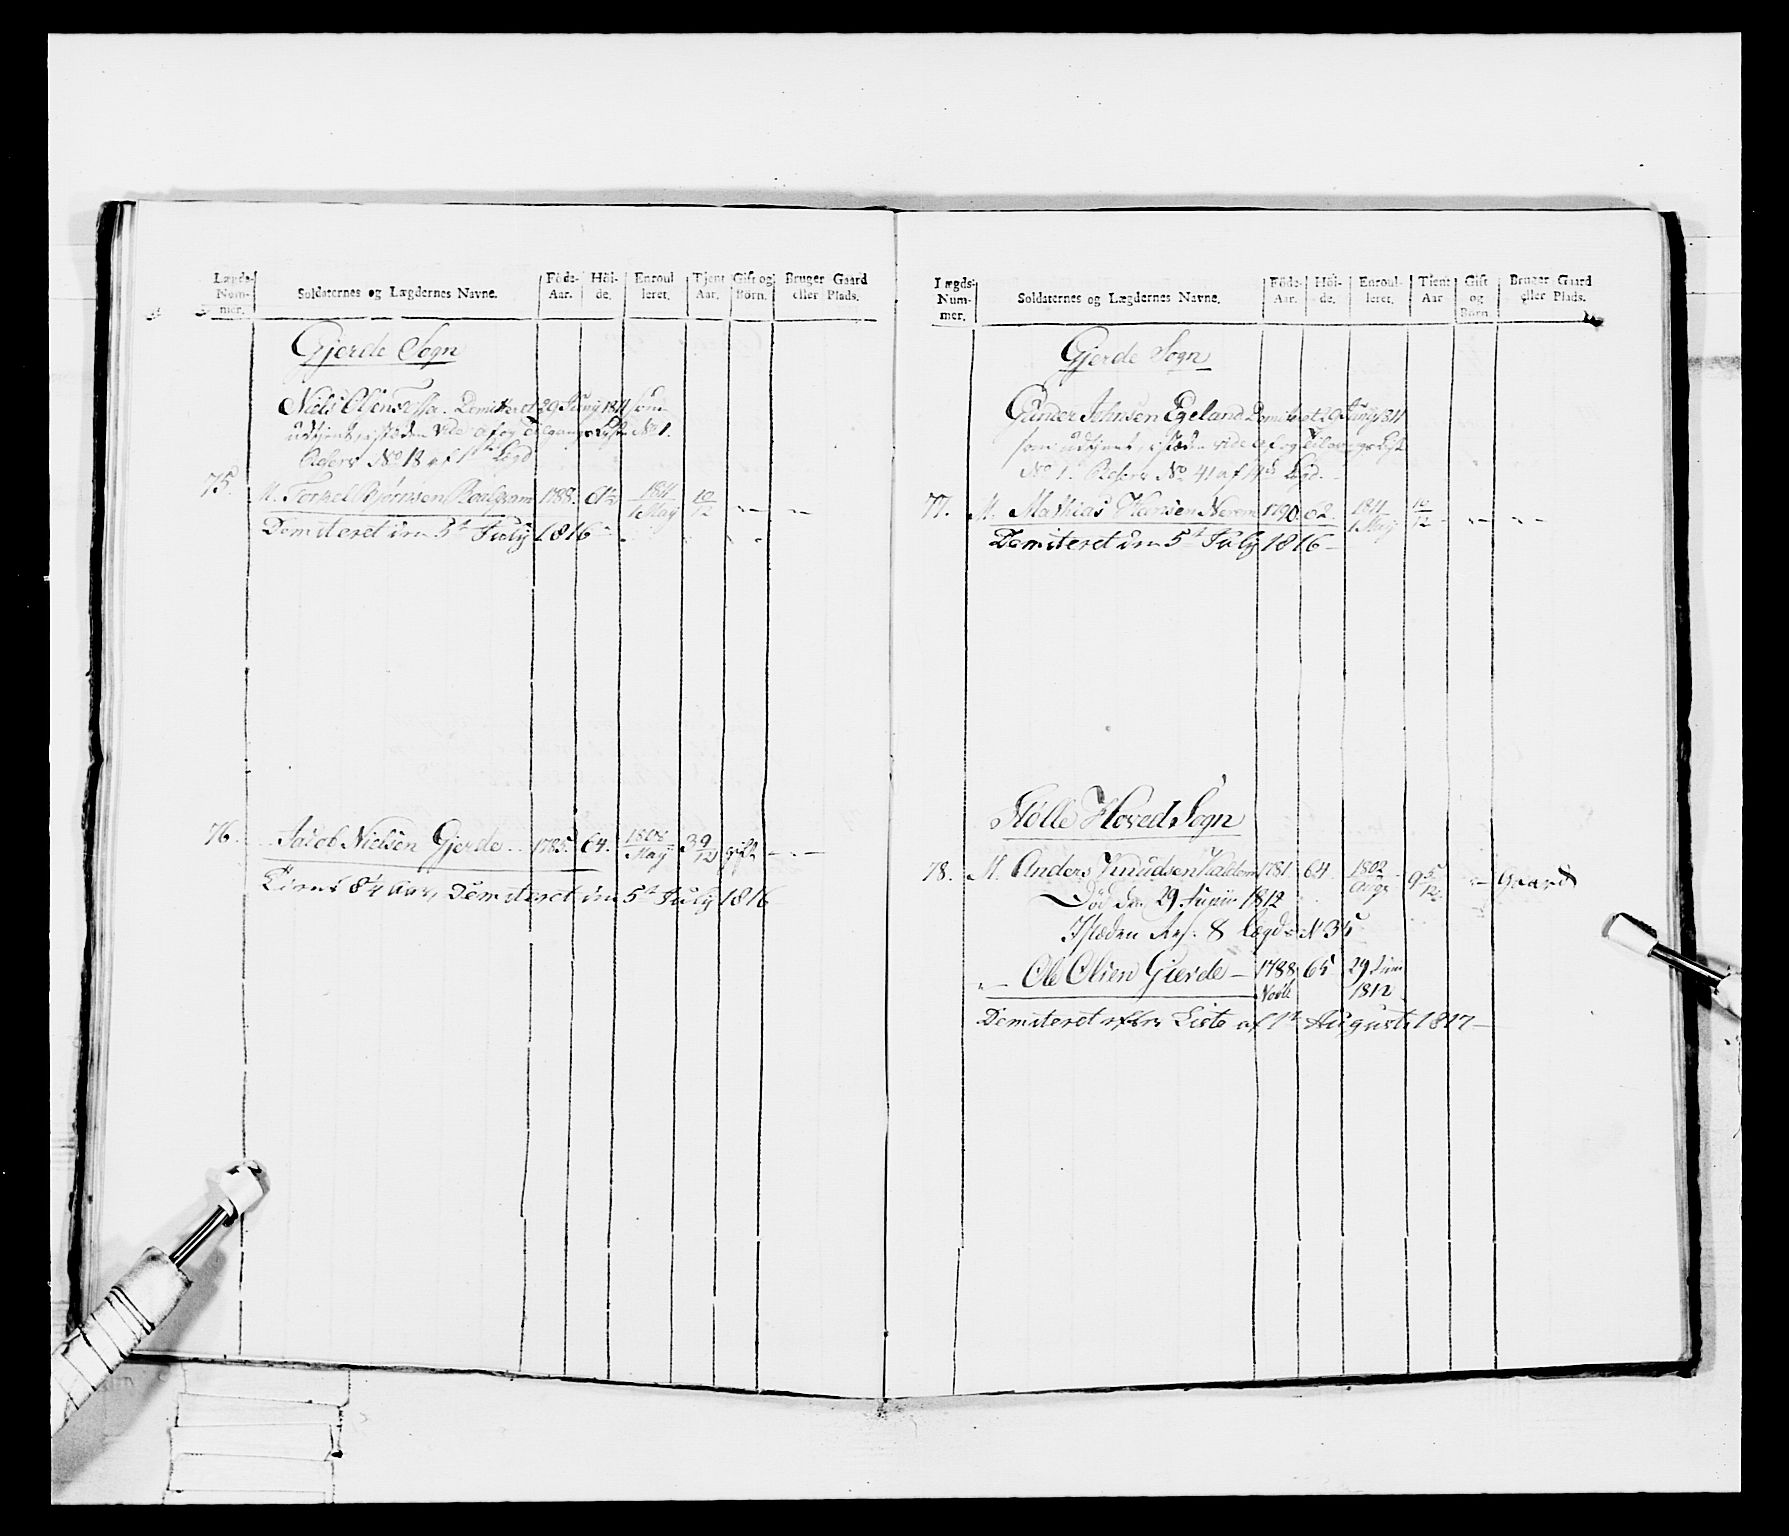 Lægds-Num-mer. Soldaternes og Lægdernes Navne. Föde-Aar. Höi-de. Enroul leret. Tjent Aar. Gift og Börn. Bruger Gaard eller Plads.
Gjerde Sogn
Niels Olsen Demitteret 29 Junij 1811 som
udtjent, istæden vide af og Tilgangs Liste No 1.
Reserv No 13 af 1ste Legd
75. M. Torkel Bjørnsen 1788. 61½ 1811 1 May 10/12 " — " —
Demiteret d. 5t July 1816 —
76. Jacob Nielsen Gjerde 1785. 64. 1808 May 3 9/12 gift — " —
Tient 8¼ Aar, Demiteret d. 5t July 1816
Lægds-Num-mer. Soldaternes og Lægdernes Navne. Föde-Aar. Höi-de. Enroul-leret. Tient Aar Gift og Börn. Bruger Gaard eller Plads.
Gjerde Sogn
Gunder Johnsen Egeland Demiteret 29 Junij 1811
som udtjent, istæden vide af og Tilgangs List
No 1. Reserv No 41 af Legd.
77. M. Mathias Hansen 1790. 62. 1811 1 May 10/12 " — " —
Demiteret d. 5t July 1816 —
Hoved Sogn
78. M. Anders Knudsen 1781 64. 1802 Augs 9 5/12 " — Gaard
Død den 29 Junii 1812
Istæden Res: 8 Lægd N 35
" — Ole Olsen Gierde — 1788 65 29 Juni 1812
Demiteret efter Liste af 1t August 1817 —